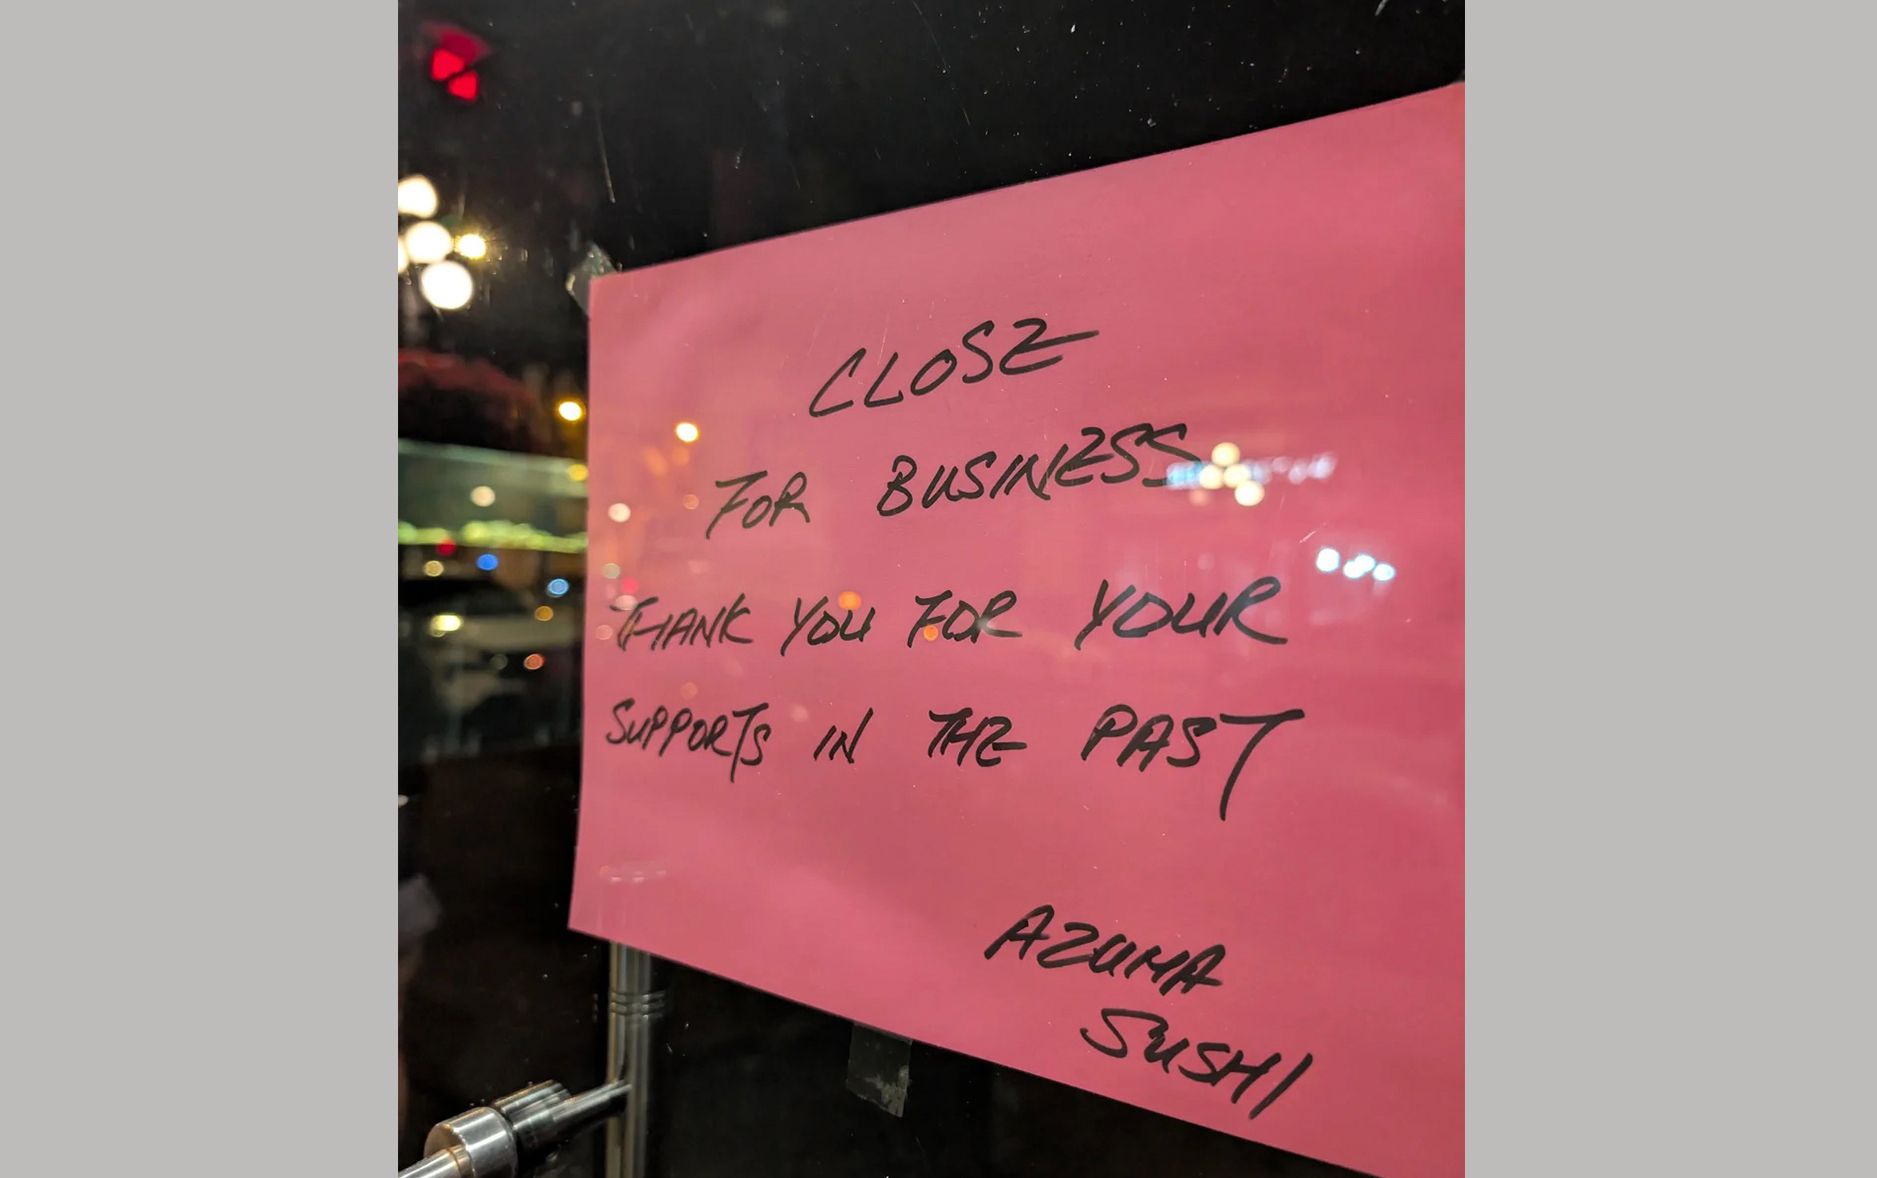 CLOSE
FOR BUSINESS
THANK YOU FOR YOUR
SUPPORTS IN THE PAST
AZUMA
SUSHI